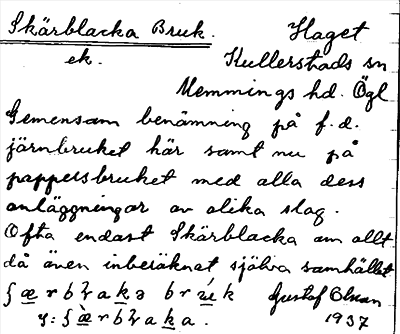 Skärblacka Bruk. Haget
ek. Kullerstads sn
Memmings hd. Ögl
Gemensam benämning på f.d.
järnbruket här samt nu på
pappersbruket med alla dess
anläggningar av olika slag.
Ofta endast Skärblacka om allt
då även inberäknat själva samhället
ʃærbɫaka br k Gustaf
y: ʃæ̀rbɫaka. 1937